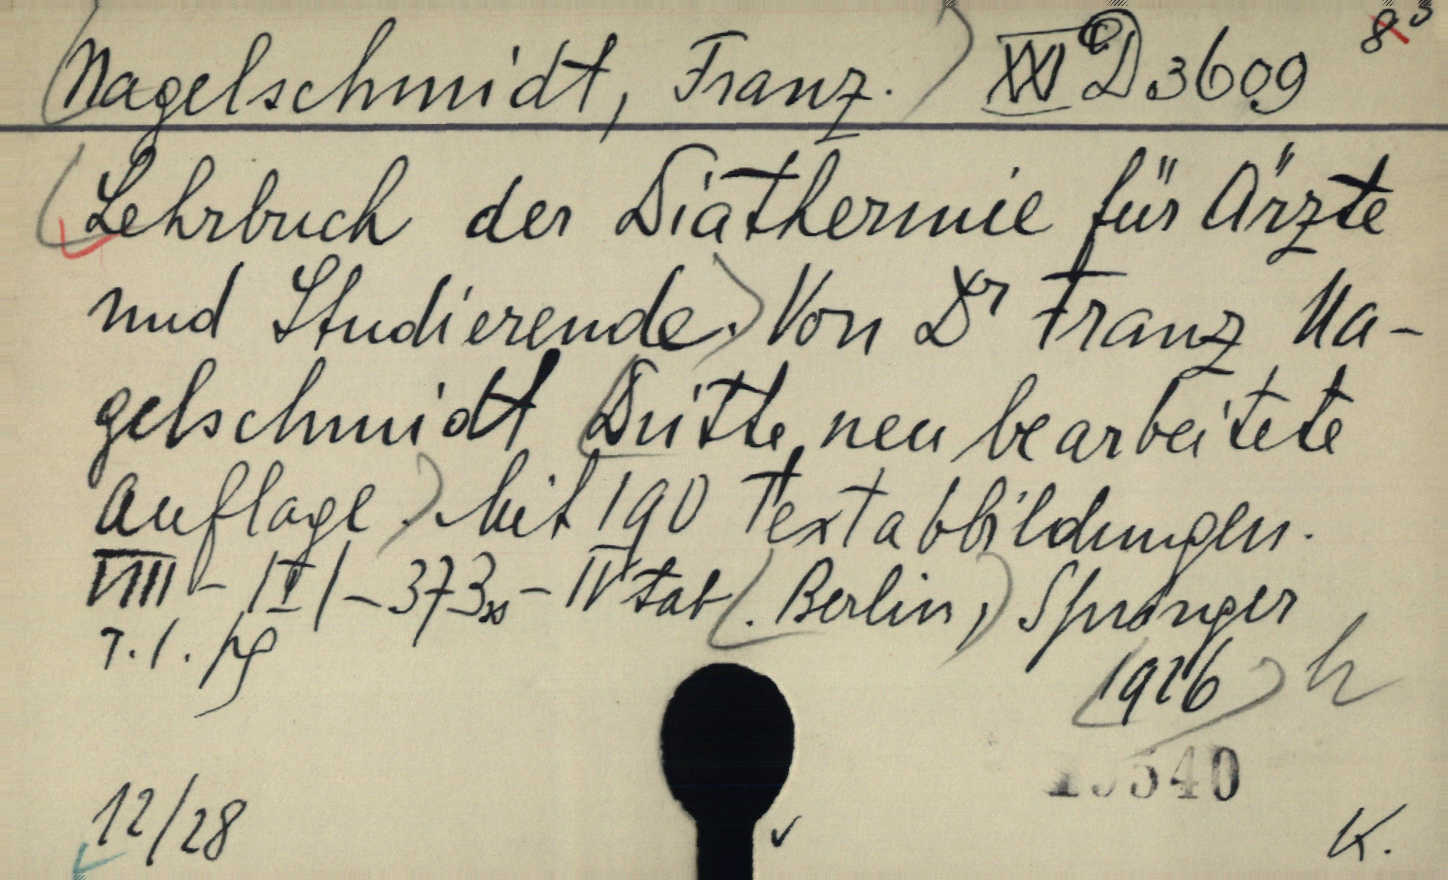 Nagelschmidt, Franz. XXI D 3609
Lehrbuch der Diathermie für Ärzte
und Studierende. Von Dr Franz Na-
gelschmidt Dritte neu bearbeitete
Auflage. Mit 190 Textabbildungen.
VIII - |I| - 373 - IV tab. Berlin, Springer
1926
12/28
K.